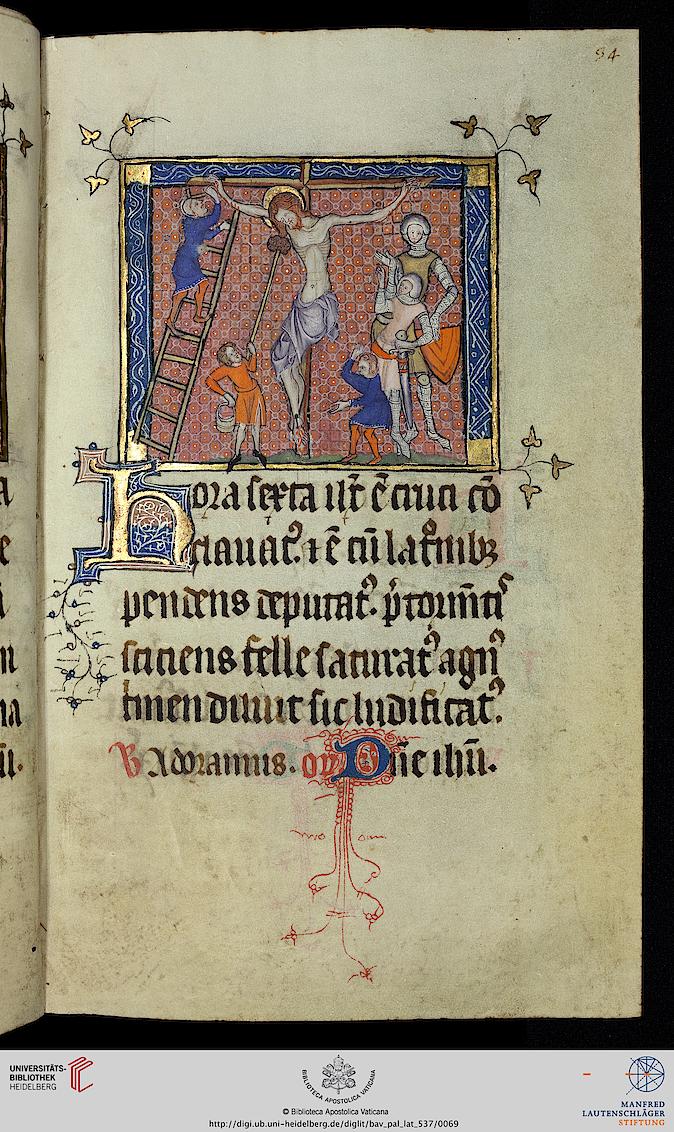 94
Hora sexta ih̅c ē cruci cō
clauat᷒. ⁊ ē cū lat͛nibꝫ
pendens deputat᷒. p̄ torm̄tꝭ
sciciens felle saturat᷒ agn᷒
crimen diluit sic ludificat᷒.
V Adoramus. or̄ Dn̄e ihū.
UNIVERSITÄTS-
BIBLIOTHEK
HEIDELBERG
BIBLIOTECA APOSTOLICA VATICANA
© Biblioteca Apostolica Vaticana
http://digi.ub.uni-heidelberg.de/diglit/bav_pal_lat_537/0069
MANFRED
LAUTENSCHLÄGER
STIFTUNG